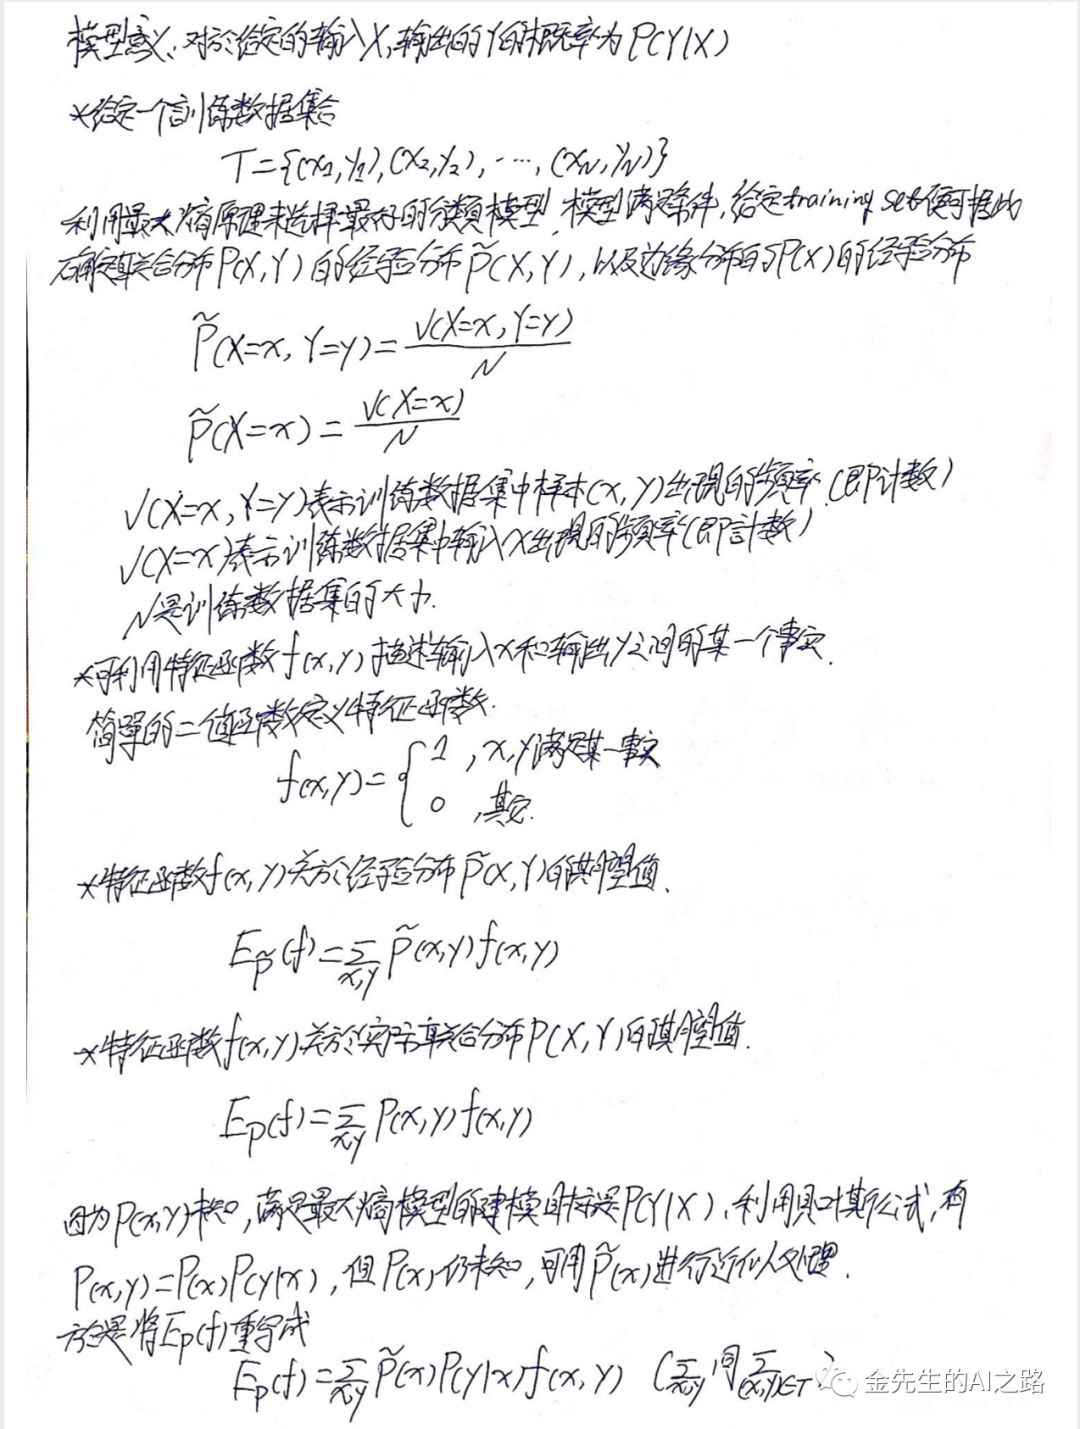 模型意义：对於给定的输入X,输出的Y的概率为P(Y|X)
*给定一个訓练数据集合
T={(x1,y1),(x2,y2),·…,(xN,yN)}
利用最大熵原理来选择最好的分類模型.模型满足条件,给定training set便可据此
确定联合分布P(X,Y)的经验分布P̃(X,Y),以及边缘分布的P(X)的经验分布
P̃(X=x,Y=y)=V(X=x,Y=y)/N
P̃(X=x)=V(X=x)/N
V(X=x,Y=y)表示训练数据集中样本(x,y)出现的频率(即计数)
V(X=x)表示训练数据集中输入x出现的频率(即計数)
N是训练数据集的大小.
*可利用特征函数f(x,y)描述输入x和输出y之间的某一个事实.
简單的二值函数定义特征函数.
f(x,y)={1,x,y满足某一事实
0,其它.
*特征函数f(x,y)关於经验分布P̃(X,Y)的期望值.
EP̃(f)=∑x,y P̃(x,y)f(x,y)
*特征函数f(x,y)关於实际联合分布P(X,Y)的期望值.
Ep(f)=∑x,y P(x,y)f(x,y)
因为P(x,y)未知,满足最大熵模型的建模目标是P(Y|X).利用贝叶斯公式,有
P(x,y)=P(x)P(y|x),但P(x)仍未知,可用P̃(x)进行近似处理.
於是将Ep(f)重写成
Ep(f)=∑x,y P̃(x)P(y|x)f(x,y) (∑x,y同∑(x,y)∈T)
金先生的AI之路